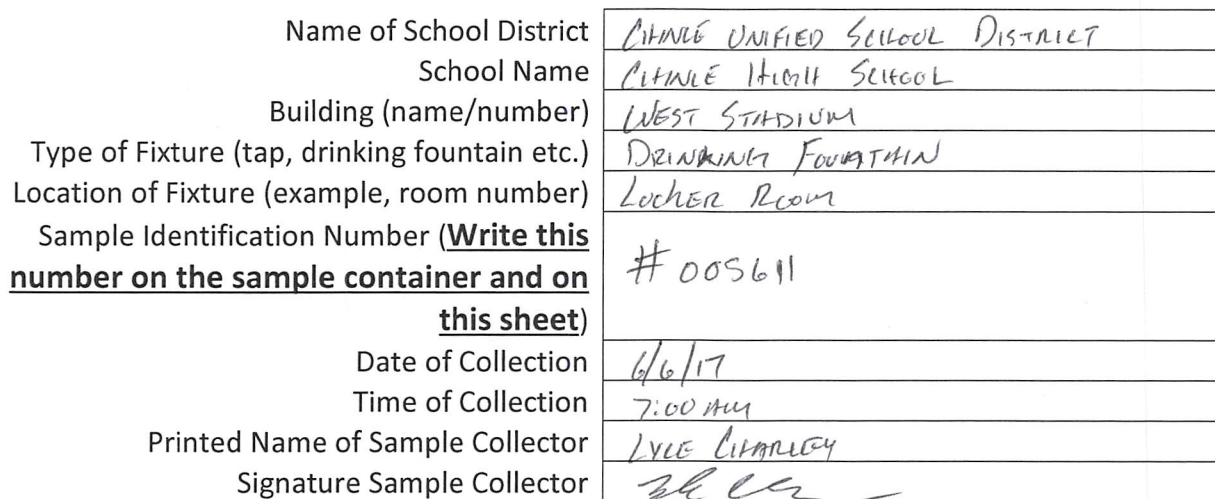 Name of School District CHINLE UNIFIED SCHOOL DISTRICT
School Name CHINLE HIGH SCHOOL
Building (name/number) WEST STADIUM
Type of Fixture (tap, drinking fountain etc.) DRINKING FOUNTAIN
Location of Fixture (example, room number) LOCKER ROOM
Sample Identification Number (Write this
number on the sample container and on
this sheet) #005611
Date of Collection 6/6/17
Time of Collection 7:00 AM
Printed Name of Sample Collector LYLE CHARLEY
Signature Sample Collector